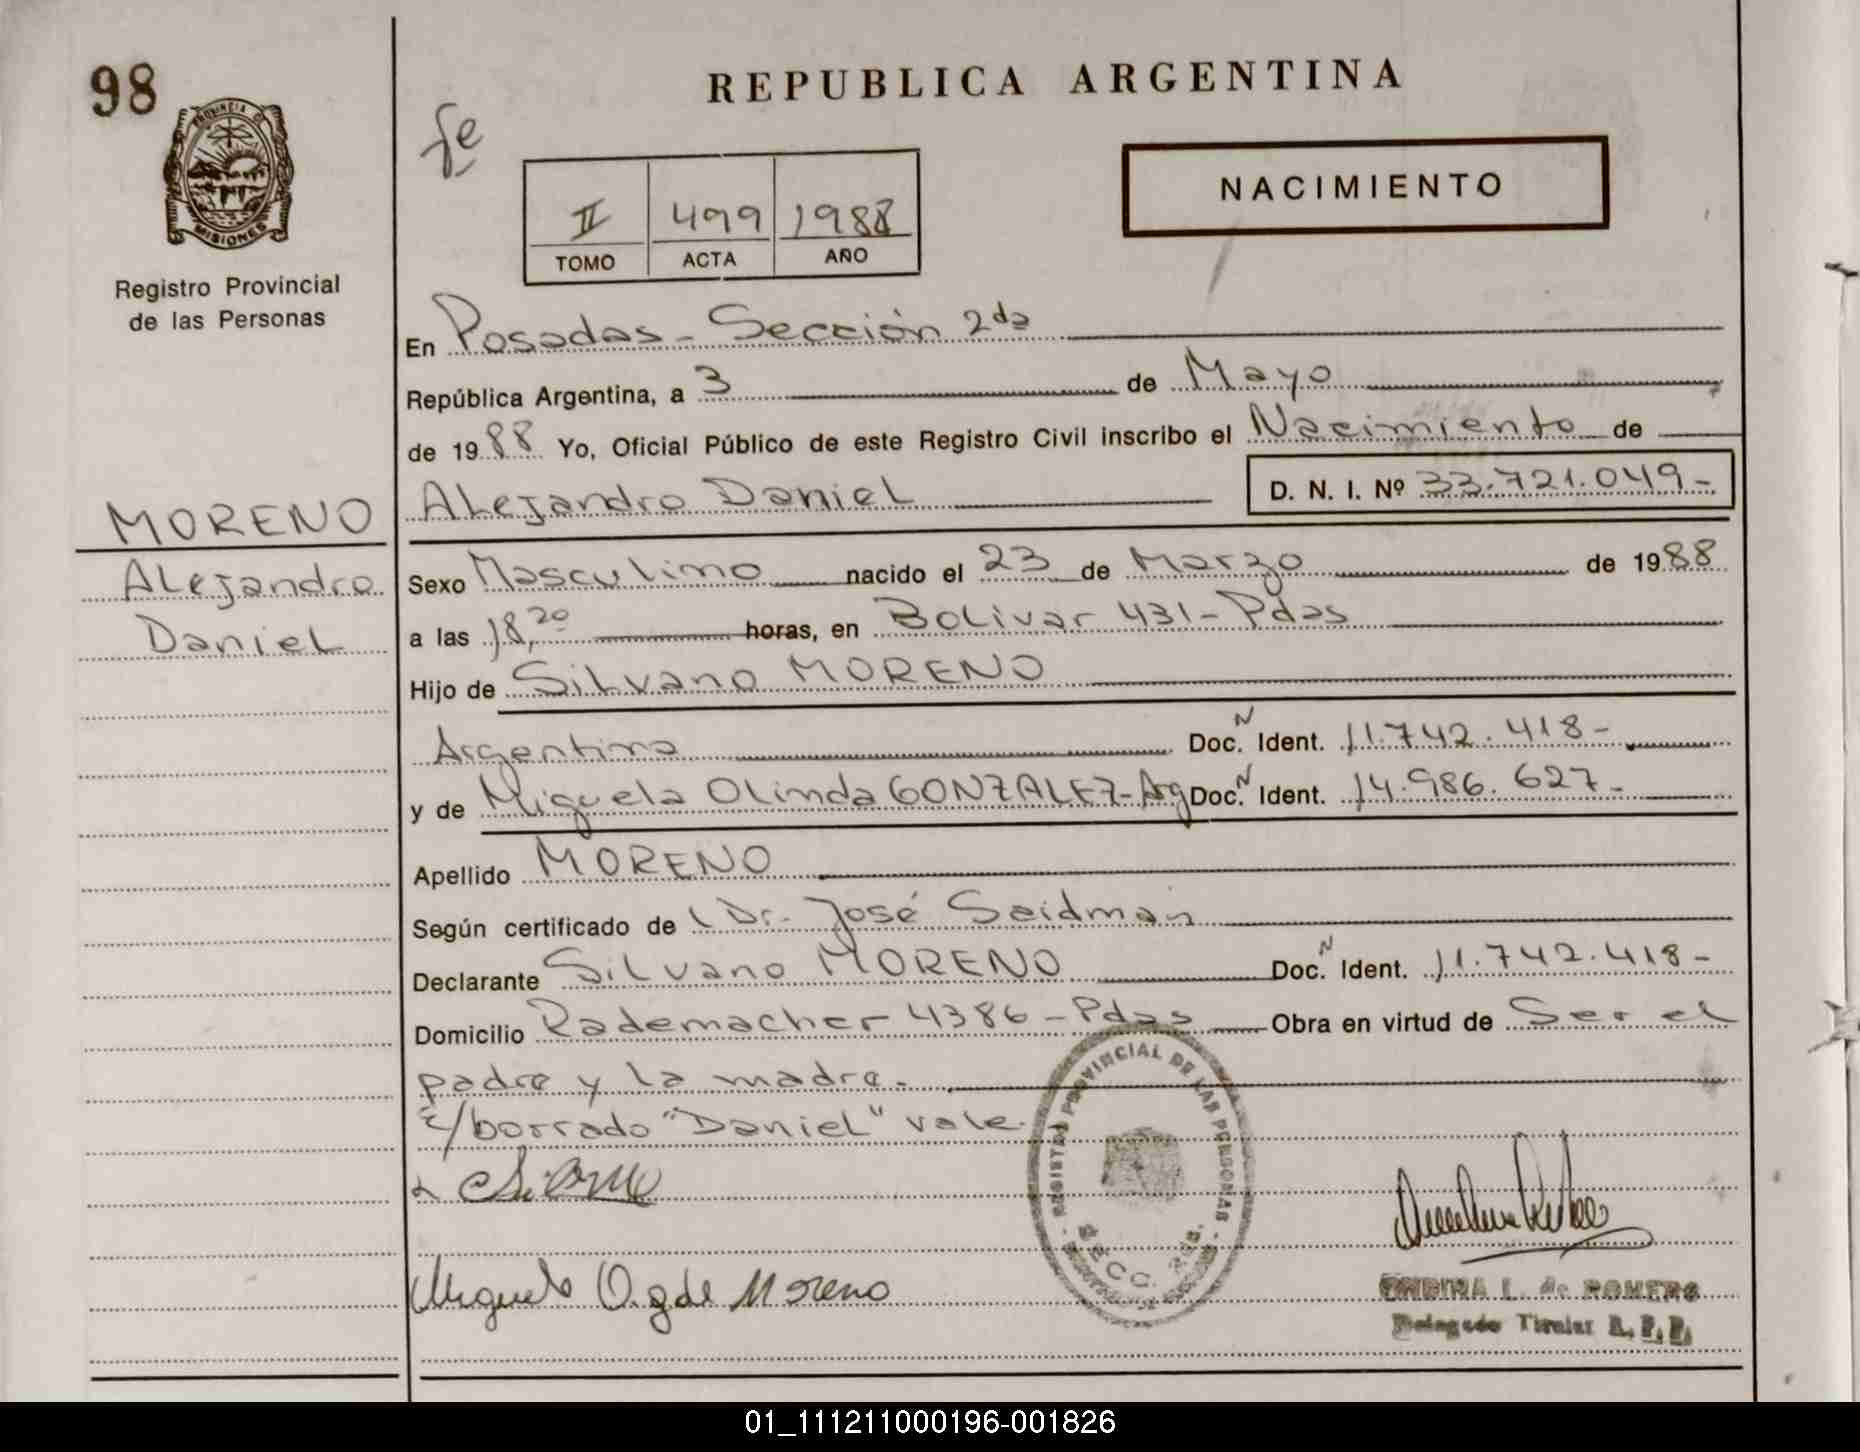 98
REPUBLICA ARGENTINA
PROVINCIA DE
MISIONES
Registro Provincial
de las Personas
II 499 1988
TOMO ACTA AÑO
NACIMIENTO
En Posadas - Sección 2da
República Argentina, a 3 de Mayo
de 1988 Yo, Oficial Público de este Registro Civil inscribo el Nacimiento de
MORENO
Alejandro
Daniel
Alejandro Daniel D. N. I. Nº 33.721.049-
Sexo Masculino nacido el 23 de Marzo de 1988
a las 18,20 horas, en Bolivar 431 - Pdas
Hijo de Silvano MORENO
Argentino Doc. N Ident. 11.742.418-
y de Miguela Olinda GONZALEZ - Arg Doc. N Ident. 14.986.627-
Apellido MORENO
Según certificado de Dr. José Seidman
Declarante Silvano MORENO Doc. N Ident. 11.742.418-
Domicilio Rademacher 4386 - Pdas Obra en virtud de Ser el
padre y la madre.
E/borrado "Daniel" vale.
REGISTRO PROVINCIAL DE LAS PERSONAS
SECC. 2da.
Miguela O. g de Moreno
L. de ROMERO
Delegado Titular R. P. P.
01_111211000196-001826